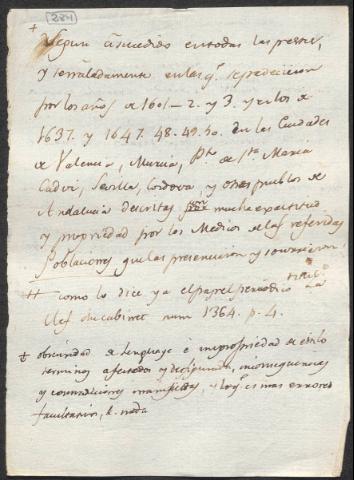 284
+
segun à sucedido en todas las pestes,
y señaladamente en las q.e se padecieron
por los años de 1601-2. y 3. y en los de
1637. y 1647. 48. 49. 50. en las Ciudades
de Valencia, Murcia, Pto de Sta Maria
Cadiz, Sevilla, Cordova, y otros pueblos de
Andalucia descritas mucha exactitud
y propriedad por los Medicos de las referidas
Poblaciones, que las presenciaron y
++ como lo dice ya el papel periodico titul.do La
Clef du cabinet num 1364. p. 4.
‡ obscuridad de lenguage è impropriedad de estilo
terminos afectados y inconsequencias
y contradiciones manifiestas, y lo q.e es mas errores
facultativos, &. nada